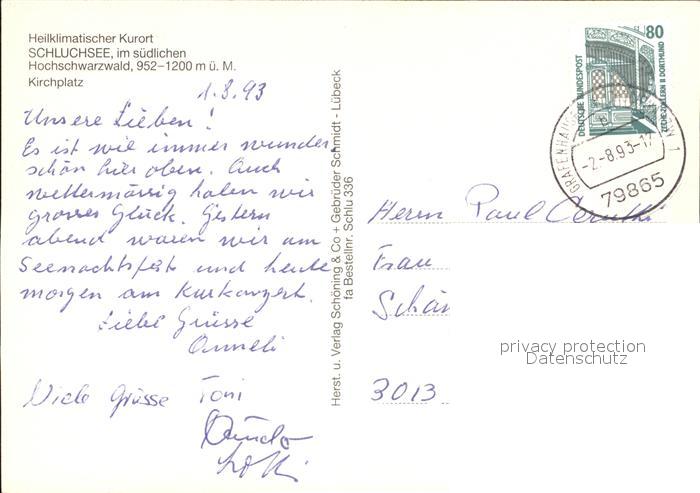 Heilklimatischer Kurort
SCHLUCHSEE, im südlichen
Hochschwarzwald, 952–1200 m ü. M.
Kirchplatz
1.8.93
Unsere Lieben!
Es ist wie immer wunder
schön hier oben. Auch
wettermässig haben wir
grosses Glück. Gestern
abend waren wir am
Seenachtsfest und heute
morgen am Kurkonzert.
Liebe Grüsse
Anneli
Viele Grüsse Toni
Herst. u. Verlag Schöning & Co + Gebrüder Schmidt - Lübeck
fa Bestellnr. Schlu 336
80
DEUTSCHE BUNDESPOST
ZECHE ZOLLERN II DORTMUND
GRAFENHAUSEN
1
-2.-8.93-17
79865
Herrn Paul
Frau
3013
privacy protection
Datenschutz